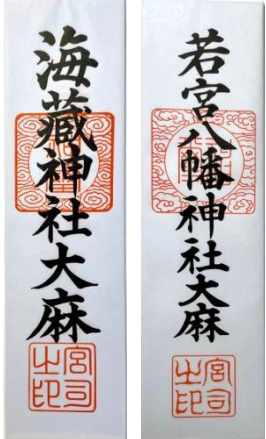 海藏神社大麻
宮司之印
若宮八幡神社大麻
宮司之印